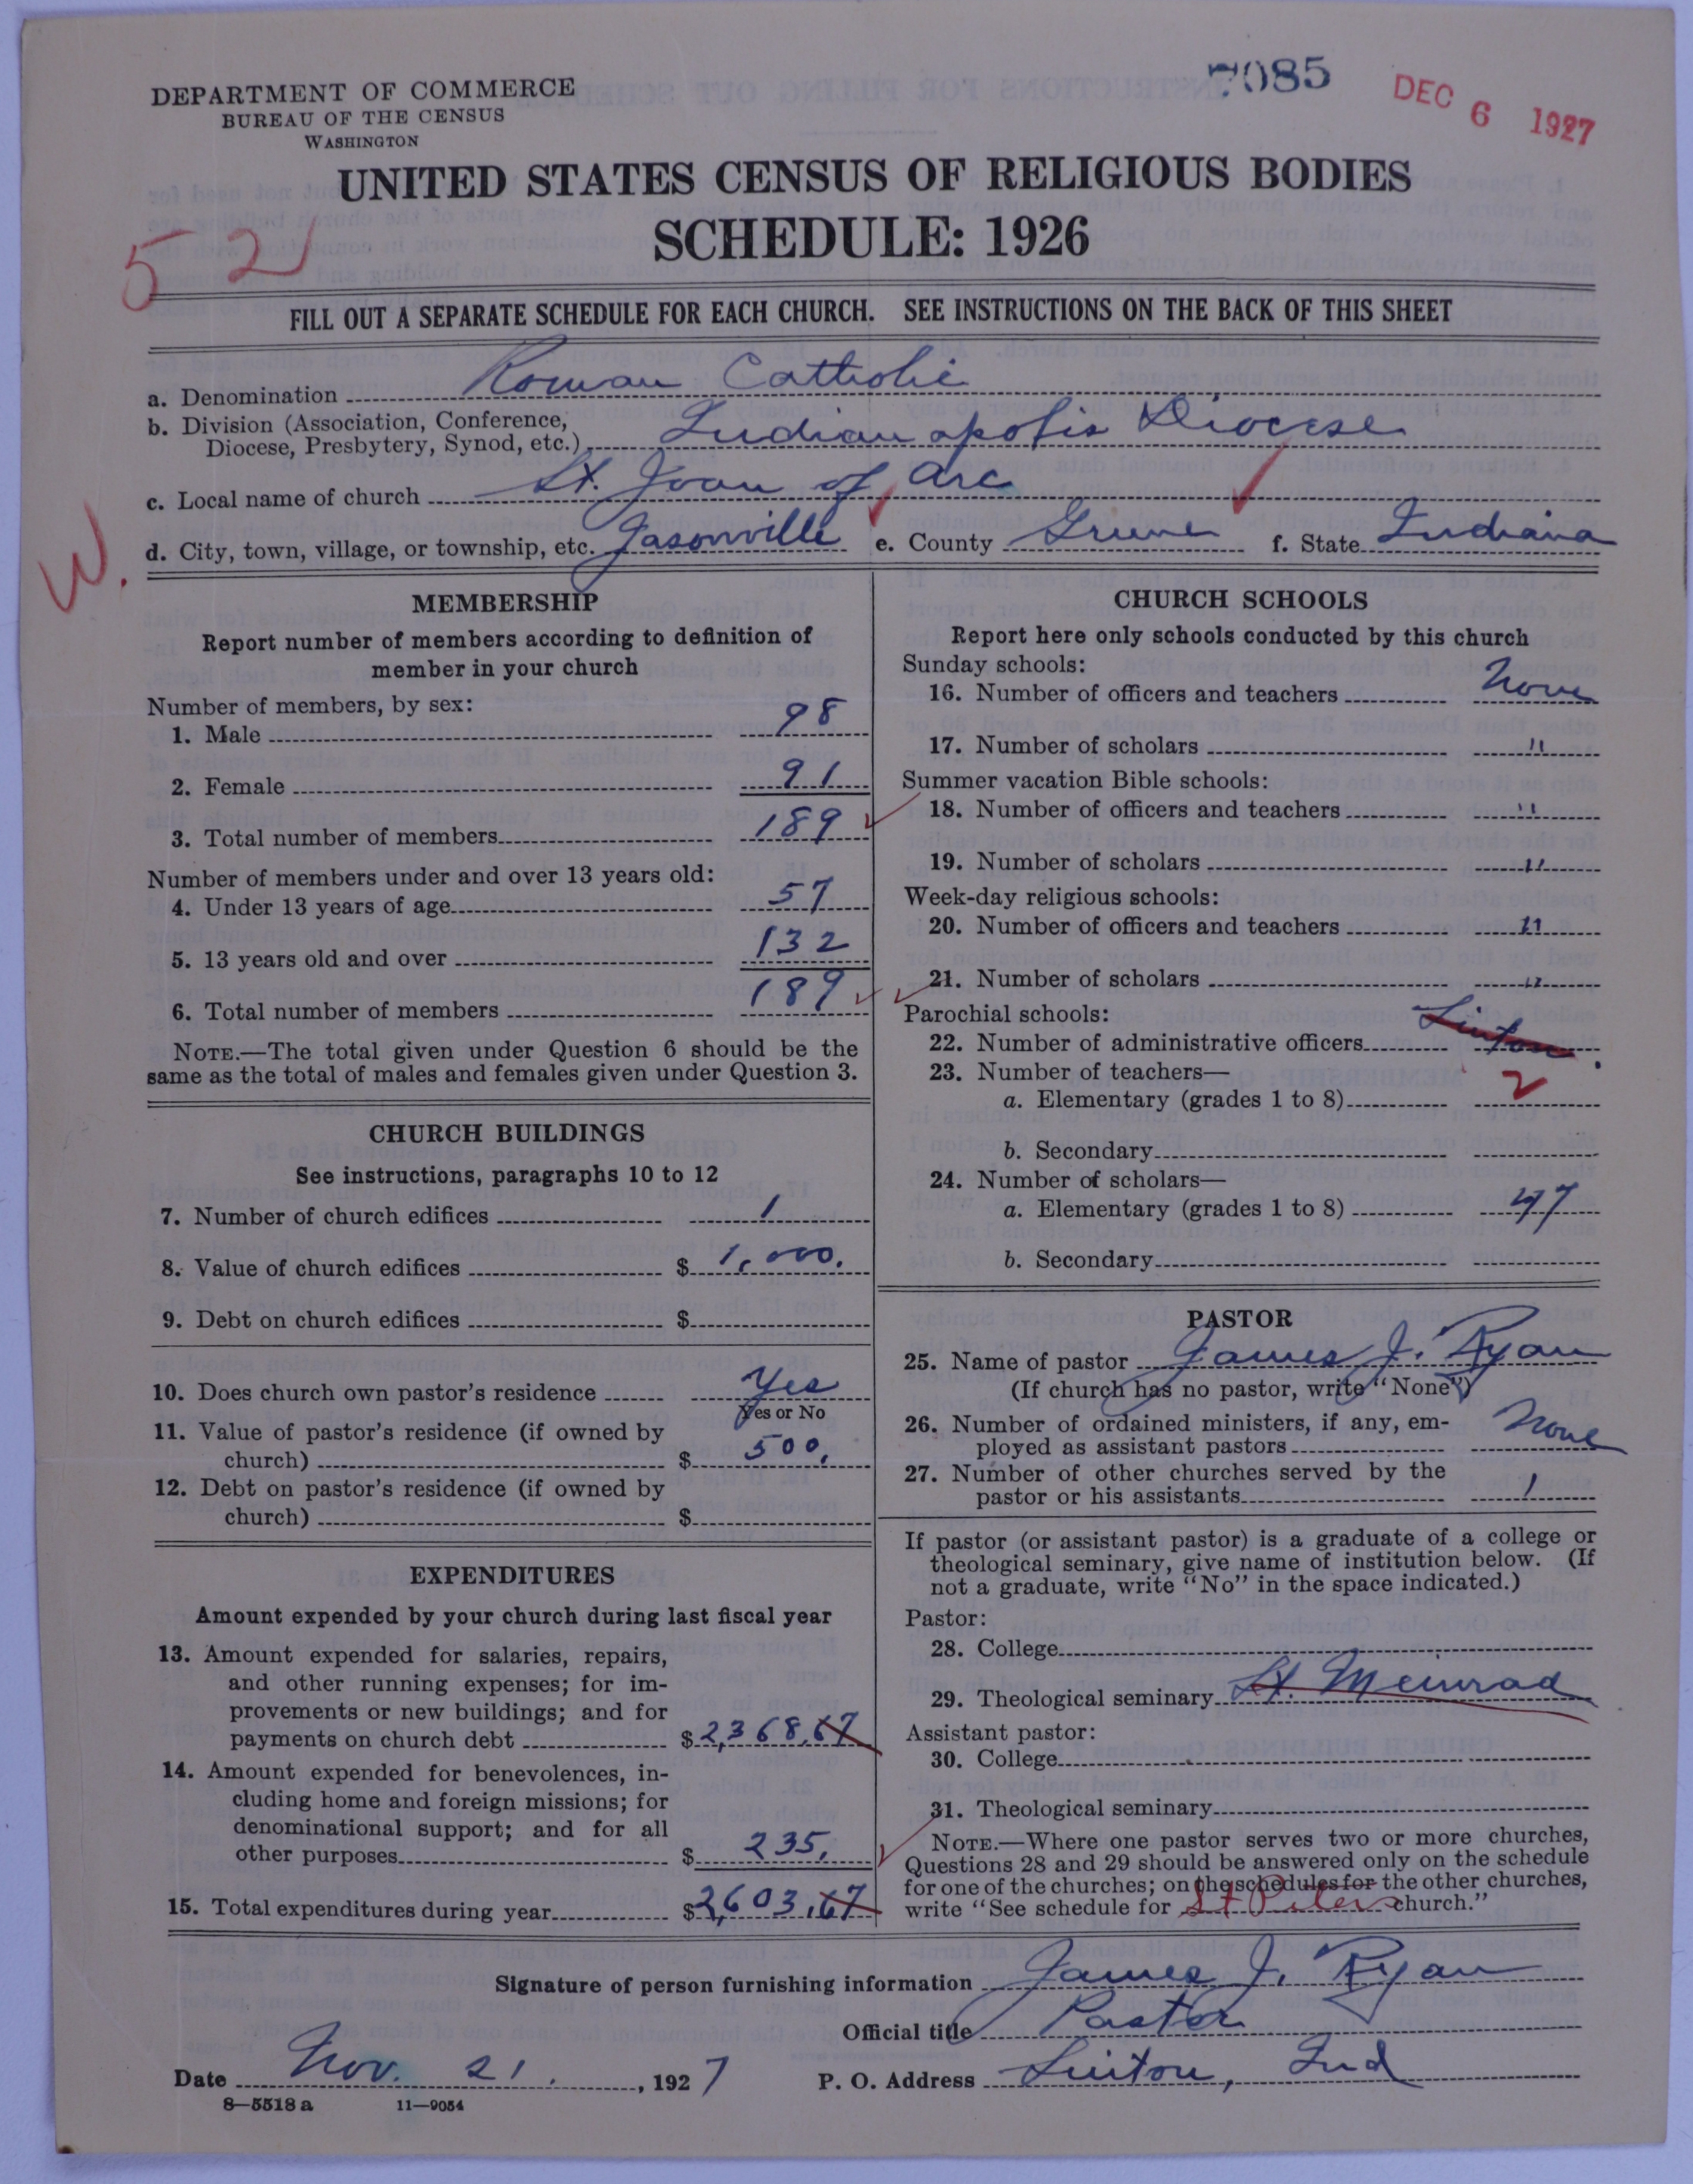 7085
DEC 6 1927
DEPARTMENT OF COMMERCE
BUREAU OF THE CENSUS
WASHINGTON
UNITED STATES CENSUS OF RELIGIOUS BODIES
SCHEDULE: 1926
52
FILL OUT A SEPARATE SCHEDULE FOR EACH CHURCH. SEE INSTRUCTIONS ON THE BACK OF THIS SHEET
a. Denomination Roman Catholic
b. Division (Association, Conference,
Diocese, Presbytery, Synod, etc.) Indianapolis Diocese
c. Local name of church St. Joan of Arc
W.
d. City, town, village, or township, etc. Jasonville e. County Greene f. State Indiana
MEMBERSHIP
Report number of members according to definition of
member in your church
Number of members, by sex:
1. Male 98
2. Female 91
3. Total number of members 189
Number of members under and over 13 years old:
4. Under 13 years of age 57
5. 13 years old and over 132
6. Total number of members 189
NOTE.—The total given under Question 6 should be the
same as the total of males and females given under Question 3.
CHURCH BUILDINGS
See instructions, paragraphs 10 to 12
7. Number of church edifices 1
8. Value of church edifices $ 1,000.
9. Debt on church edifices $
10. Does church own pastor's residence Yes
Yes or No
11. Value of pastor's residence (if owned by
church) $ 500.
12. Debt on pastor's residence (if owned by
church) $
EXPENDITURES
Amount expended by your church during last fiscal year
13. Amount expended for salaries, repairs,
and other running expenses; for im-
provements or new buildings; and for
payments on church debt $ 2,368.67
14. Amount expended for benevolences, in-
cluding home and foreign missions; for
denominational support; and for all
other purposes $ 235.
15. Total expenditures during year $ 2,603.67
CHURCH SCHOOLS
Report here only schools conducted by this church
Sunday schools:
16. Number of officers and teachers None
17. Number of scholars "
Summer vacation Bible schools:
18. Number of officers and teachers "
19. Number of scholars "
Week-day religious schools:
20. Number of officers and teachers "
21. Number of scholars "
Parochial schools:
22. Number of administrative officers Linton
23. Number of teachers—
a. Elementary (grades 1 to 8) 2
b. Secondary
24. Number of scholars—
a. Elementary (grades 1 to 8) 47
b. Secondary
PASTOR
25. Name of pastor James J. Ryan
(If church has no pastor, write "None")
26. Number of ordained ministers, if any, em-
ployed as assistant pastors None
27. Number of other churches served by the
pastor or his assistants 1
If pastor (or assistant pastor) is a graduate of a college or
theological seminary, give name of institution below. (If
not a graduate, write "No" in the space indicated.)
Pastor:
28. College
29. Theological seminary St. Meinrad
Assistant pastor:
30. College
31. Theological seminary
NOTE.—Where one pastor serves two or more churches,
Questions 28 and 29 should be answered only on the schedule
for one of the churches; on the schedules for the other churches,
write "See schedule for St Peters church."
Signature of person furnishing information James J. Ryan
Official title Pastor
Date Nov. 21, 1927 P. O. Address Linton, Ind
8—5518 a 11—9054